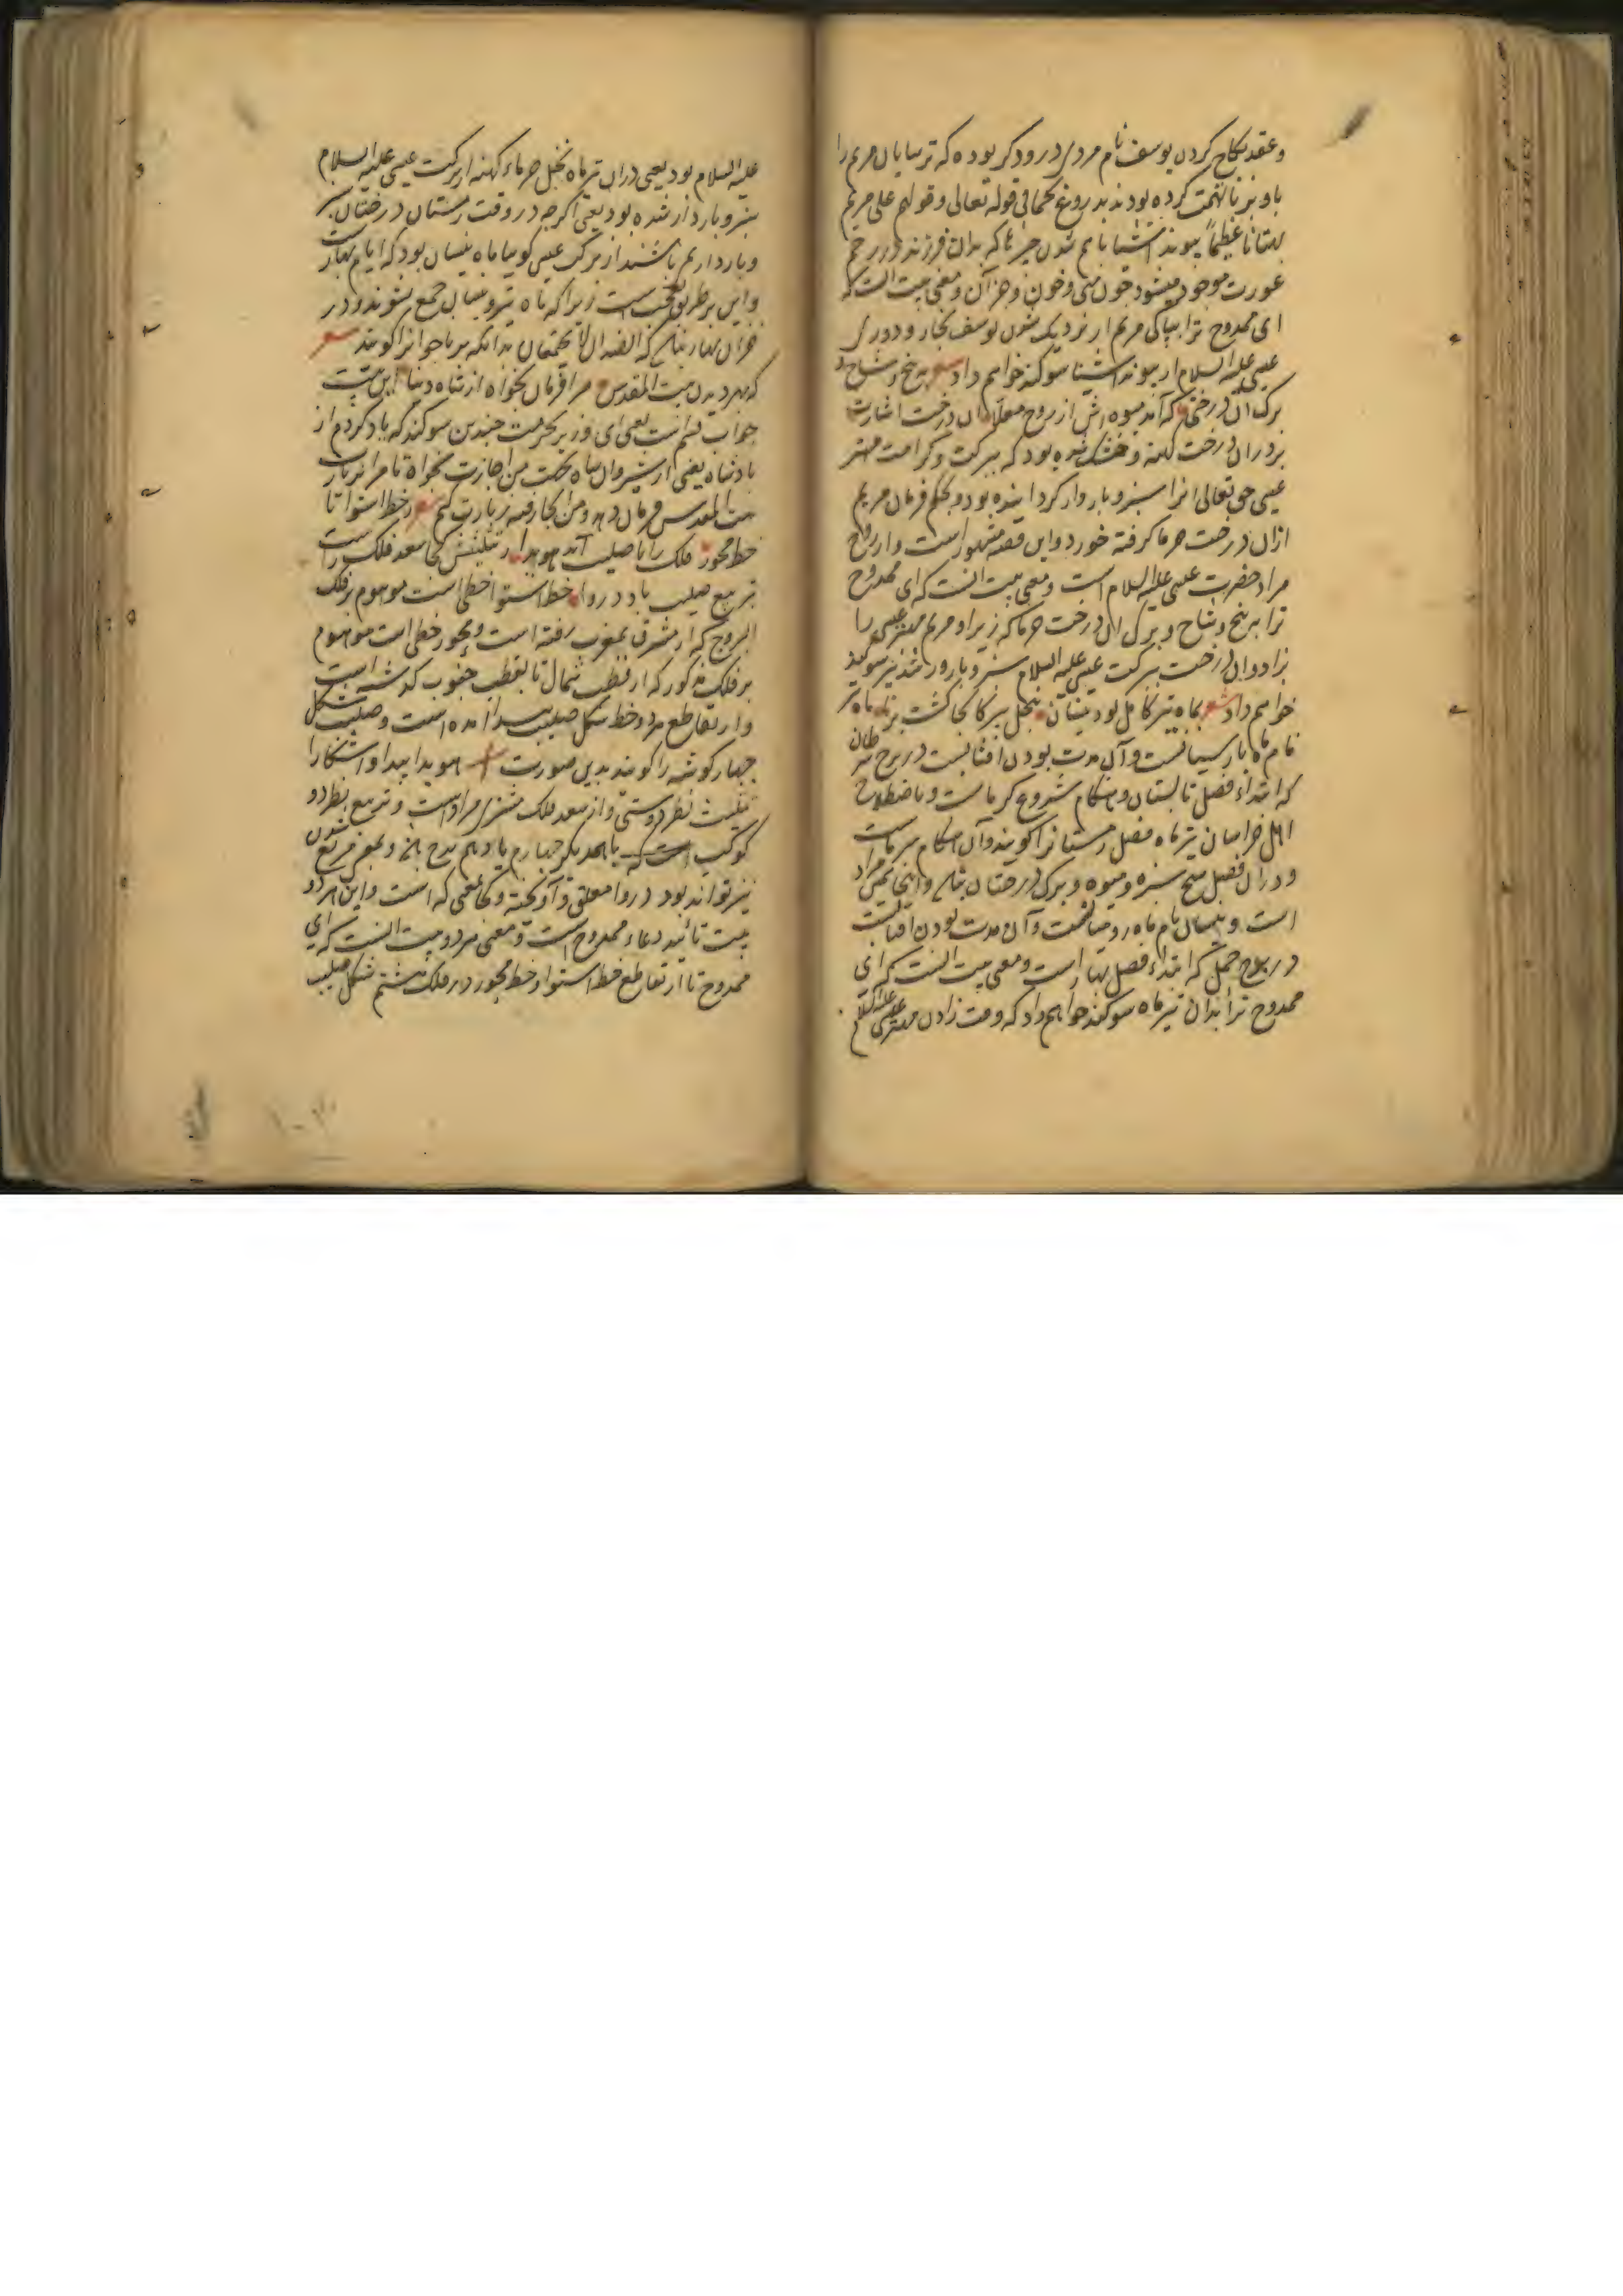 وعقد نکاح کردن یوسف نام مردی درودکر بوده که ترسایان مریم را
باو بزنا تهمت کرده بودند بدروغ کما فی قوله تعالی وقولهم علی مریم
بهتانا عظیما پیوند اشیا باهم شدن چیزها که بدان فرزند در رحم
عورت موجود میشود چون منی وخون وجز آن ومعنی بیت آنست که
ای ممدوح ترا بپاکی مریم از نزدیک شدن یوسف نجار ودوری
عیسی علیه السلام از پیوند اشیا سوکند خواهم داد شعر به بیخ وشاخ و
برک آن درختی که آمد میوه اش از روح معلا آن درخت اشارت
بر دران درخت کهنه وخشک شده بود که ببرکت وکرامت مهتر
عیسی حق تعالی انرا سبز وباروار کردانیده بود وبحکم فرمان مریم
ازان درخت خرما کرفته خورد واین قصه مشهور است واز روح
مراد حضرت عیسی علیه السلام است ومعنی بیت آنست که ای ممدوح
ترا به بیخ وشاخ وبرک آن درخت خرما که زیر او مریم مهتر عیسی را
زاد وان درخت ببرکت عیسی علیه السلام سبز وبارور شد نیز سوکند
خواهم داد شعر بماه تیر کامل بود نیسان بنخل پیر کانجا کشت برنا ماه تیر
نام ماه پارسیانست وآن مدت بودن افتابست در برج سرطان
که ابتداء فصل تابستان وهنکام شروع کرماست وباصطلاح
اهل خراسان تیرماه فصل زمستانرا کویند وآن هنکام سرماست
ودران فصل هیچ سبزه ومیوه وبرک درختان نباشد واینجا همین مراد
است ونیسان نام ماه رومیانست وآن مدت بودن افتابست
در برج حمل که ابتداء فصل بهار است ومعنی بیت آنست که ای
ممدوح ترا بدان تیرماه سوکند خواهم داد که وقت زادن مهتر عیسی علیه السلام
علیه السلام بود یعنی دران تیرماه نخل خرماء کهنه از برکت عیسی علیه السلام
سبز وباردار شده بود یعنی اکرچه در وقت زمستان درختان سبز
وباردار نمیباشند از برکت عیسی کوییا ماه نیسان بود که ایام بهارست
واین بر طریق تعجب است زیرا که ماه تیر ونیسان جمع نشوند ودر
خزان بهار نباشد که الضدان لا یجتمعان بدانکه برنا جوانرا کویند شعر
که بهر دیدن بیت المقدس مرا فرمان بخواه از شاه دنیا این بیت
جواب قسم است یعنی ای وزیر بحرمت چندین سوکند که یاد کردم از
بادشاه یعنی از شیروان شاه بجهت من اجازت بخواه تا مرا زیارت
بیت المقدس فرمان دهد ومن آنجا رفته زیارت کنم شعر ز خط استوا تا
خط محور فلک را تا صلیب آید هویدا ز تثلیثش کجا سعد فلک راست
تربیع صلیب باد دروا خط استوا خطی است موهوم بر فلک
البروج که از مشرق بمغرب رفته است ومحور خطی است موهوم
بر فلک مذکور که از قطب شمال تا بقطب جنوب کذشته است
واز تقاطع هر دو خط شکل صلیب پیدا آمده است وصلیب شکل
چهار کوشه را کویند بدین صورت + هویدا پیدا وآشکارا
تثلیث نظر دوستی واز سعد فلک مشتری مراد است وتربیع نظر دو
کوکب است که بایکدیکر چهارم یا دهم برج باشند وبمعنی مربع شدن
نیز تواند بود دروا معلق وآویخته وکجا بمعنی که است واین هر دو
بیت تائید دعاء ممدوح است ومعنی هر دو بیت آنست که ای
ممدوح تا از تقاطع خط استوا وخط محور در فلک هشتم شکل صلیب